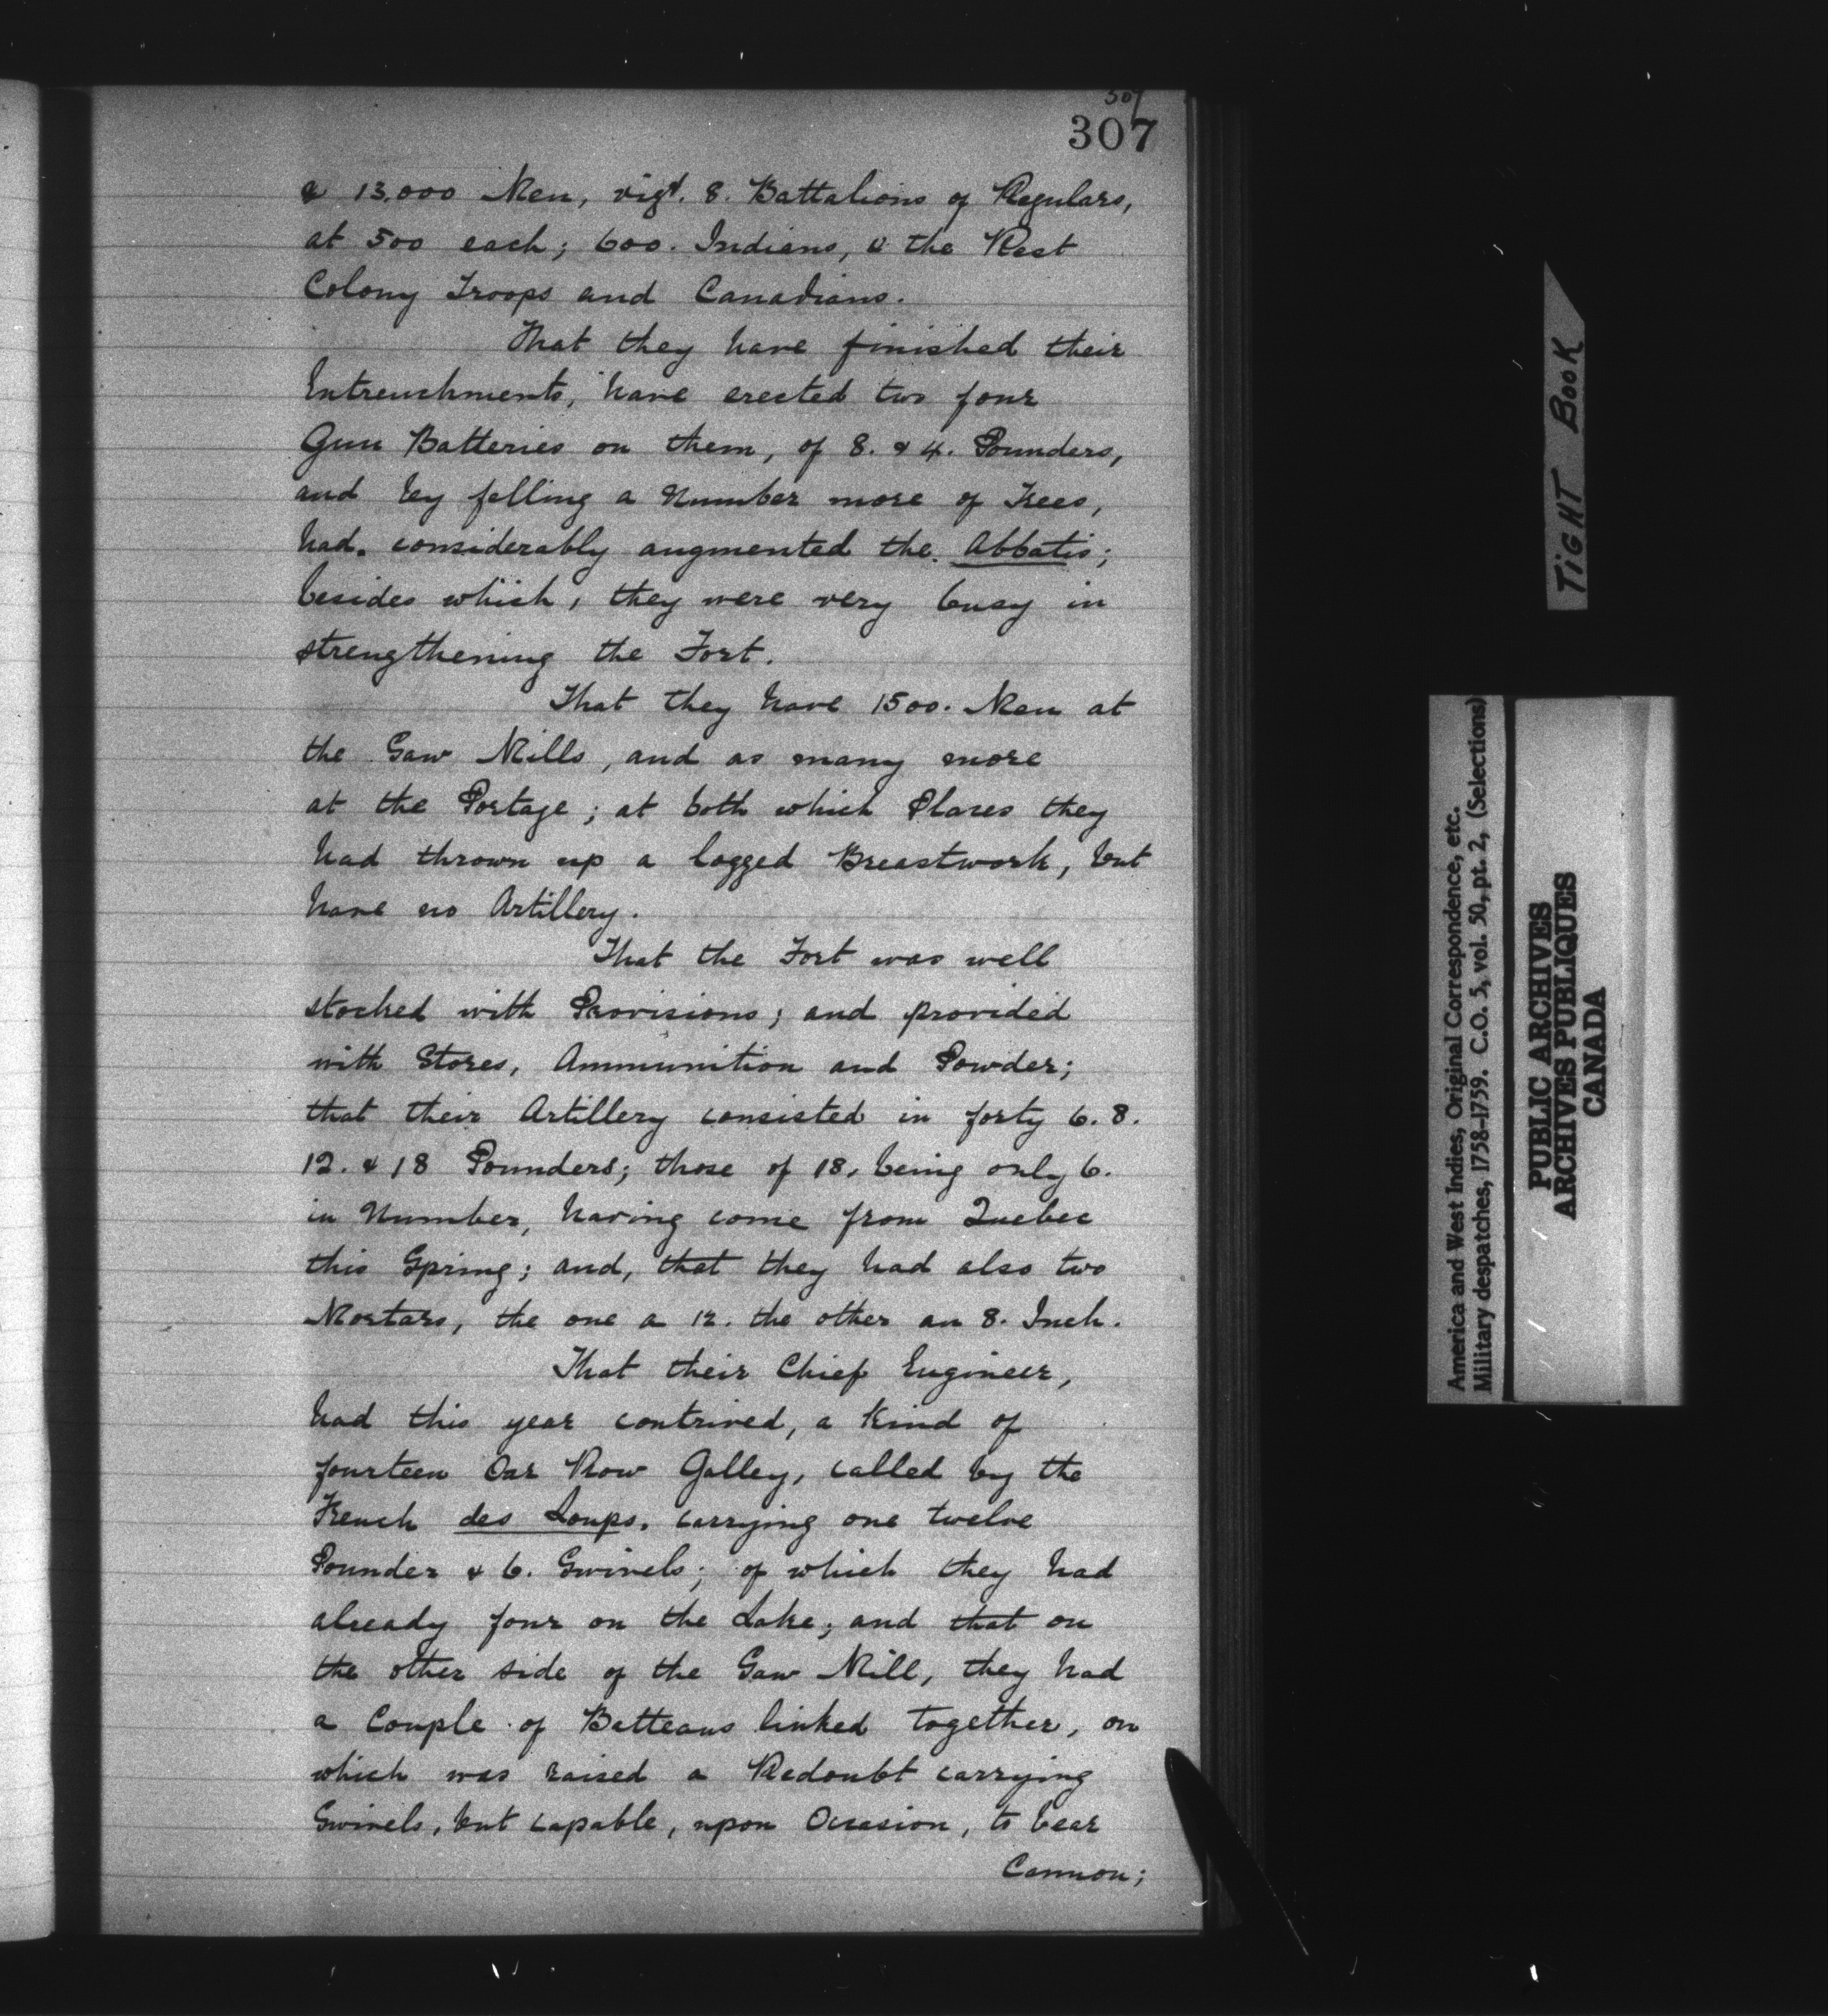 307
307
& 13.000 Men, vizt. 8. Battalions of Regulars,
at 500 each; 600. Indians, & the Rest
Colony Troops and Canadians.
That they have finished their
Entrenchments, have erected two four
Gun Batteries on them, of 8. & 4. Pounders,
and by felling a Number more of Trees,
had. considerably augmented the. Abbatis;
besides which, they were very busy in
strengthening the Fort.
That they have 1500. Men at
the Saw Mills, and as many more
at the Portage; at both which Places they
had thrown up a logged Breastwork, but
have no Artillery.
That the Fort was well
stocked with Provisions; and provided
with Stores, Ammunition and Powder;
that their Artillery consisted in forty 6. 8.
12. & 18 Pounders; those of 18, being only 6.
in Number, having come from Quebec
this Spring; and, that they had also two
Mortars, the one a 12. the other an 8. Inch.
That their Chief Engineer,
had this year contrived, a Kind of
fourteen Oar Row Galley, called by the
French des Loups, carrying one twelve
Pounder & 6. Swivels; of which they had
already four on the Lake; and that on
the other side of the Saw Mill, they had
a Couple of Batteaus linked together, on
which was raised a Redoubt carrying
Swivels, but capable, upon Occasion, to bear
Cannon;
TIGHT BOOK
America and West Indies, Original Correspondence, etc.
Military despatches, 1758-1759. C.O. 5, vol. 50, pt. 2, (Selections)
PUBLIC ARCHIVES
ARCHIVES PUBLIQUES
CANADA